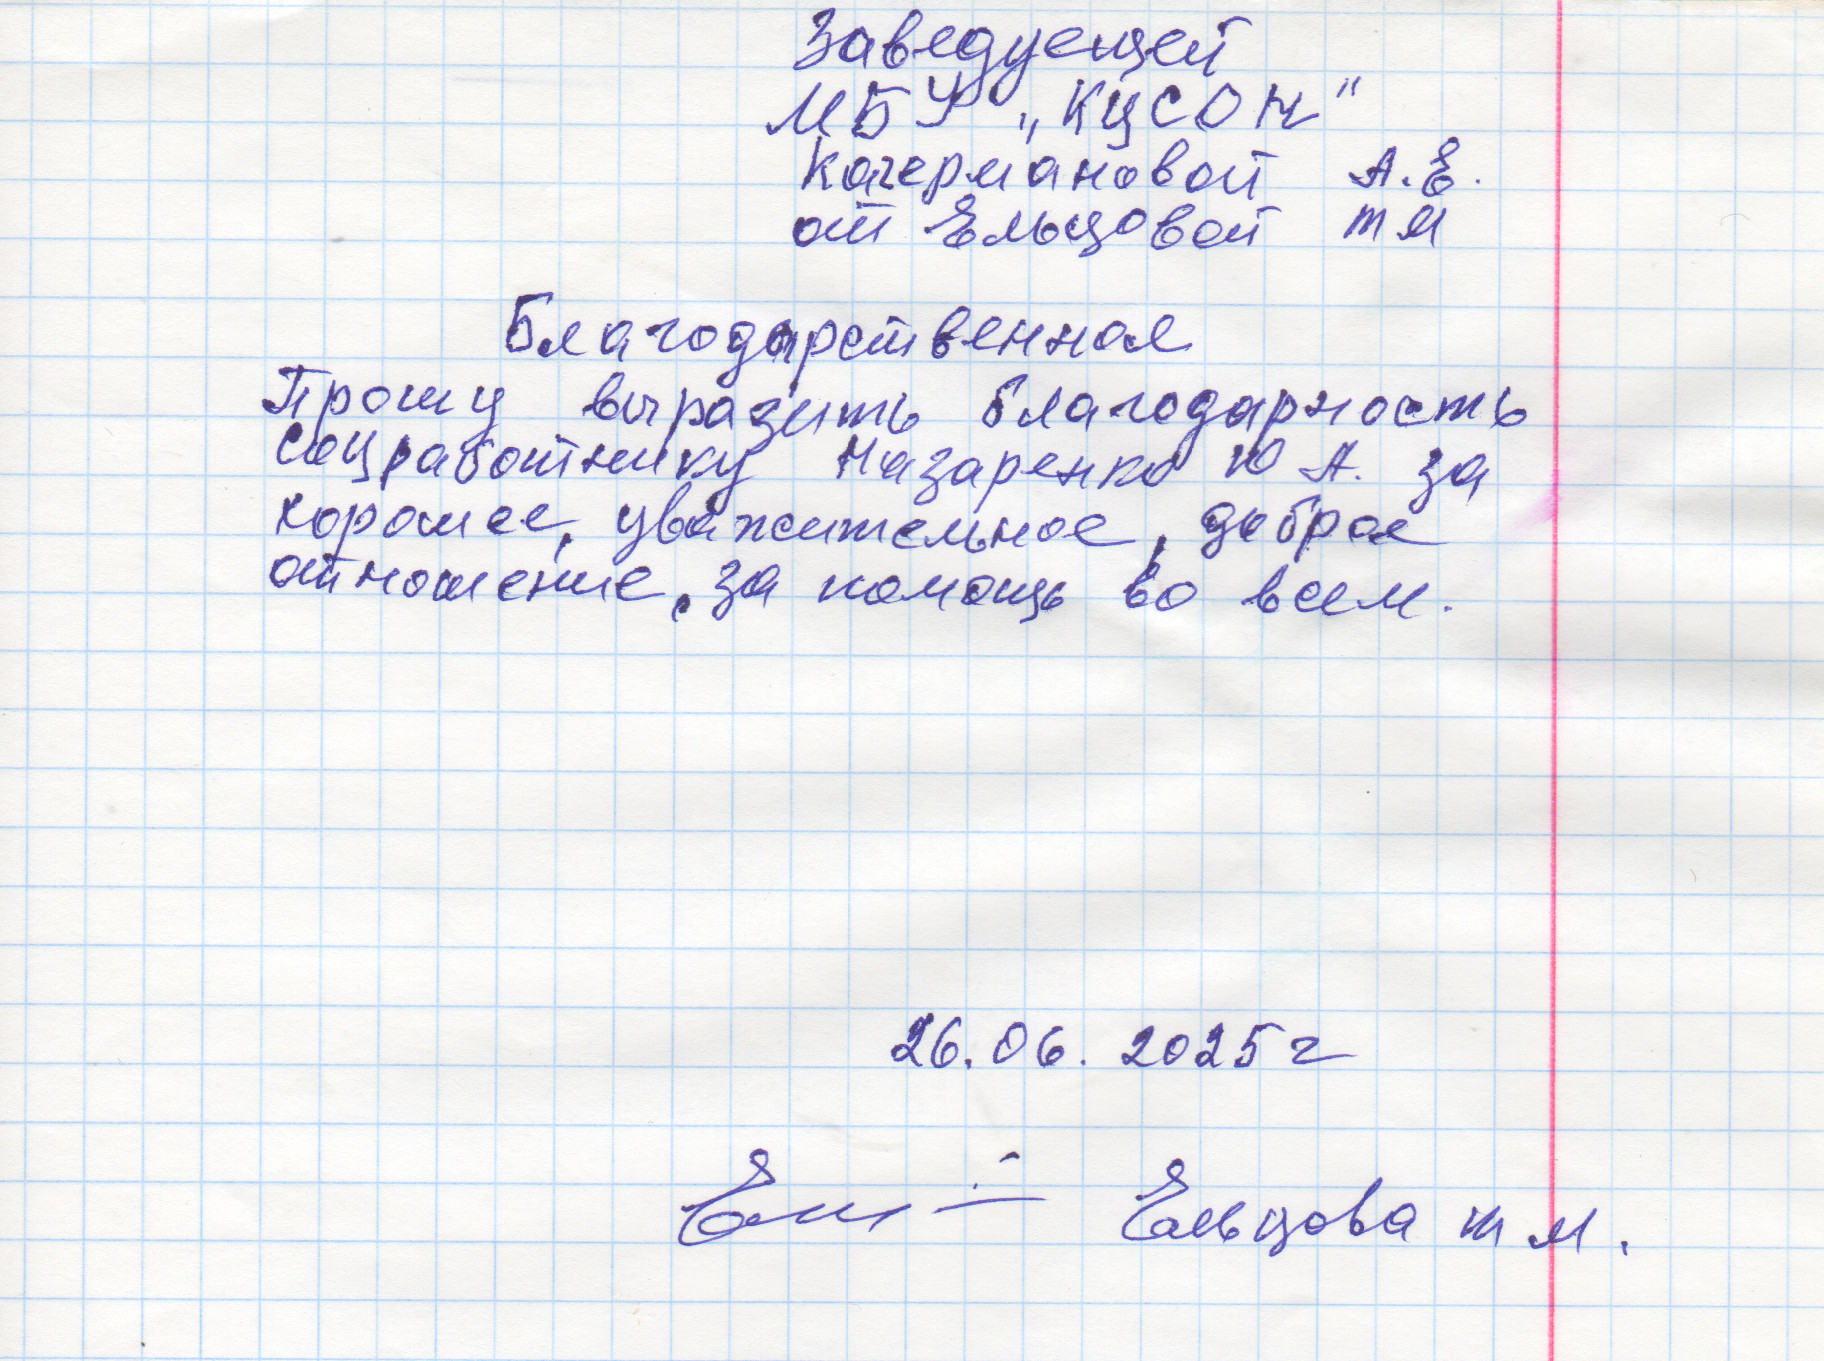 Заведуещей
МБУ „КЦСОН"
Качермановой А.Е.
от Ельцовой Т М
Благодарственное
Прошу выразить благодарность
соцработнику Назаренко Ю А. за
хорошее, уважительное, доброе
отношение, за помощь во всем.
26.06.2025 г
Ельцова Т М.